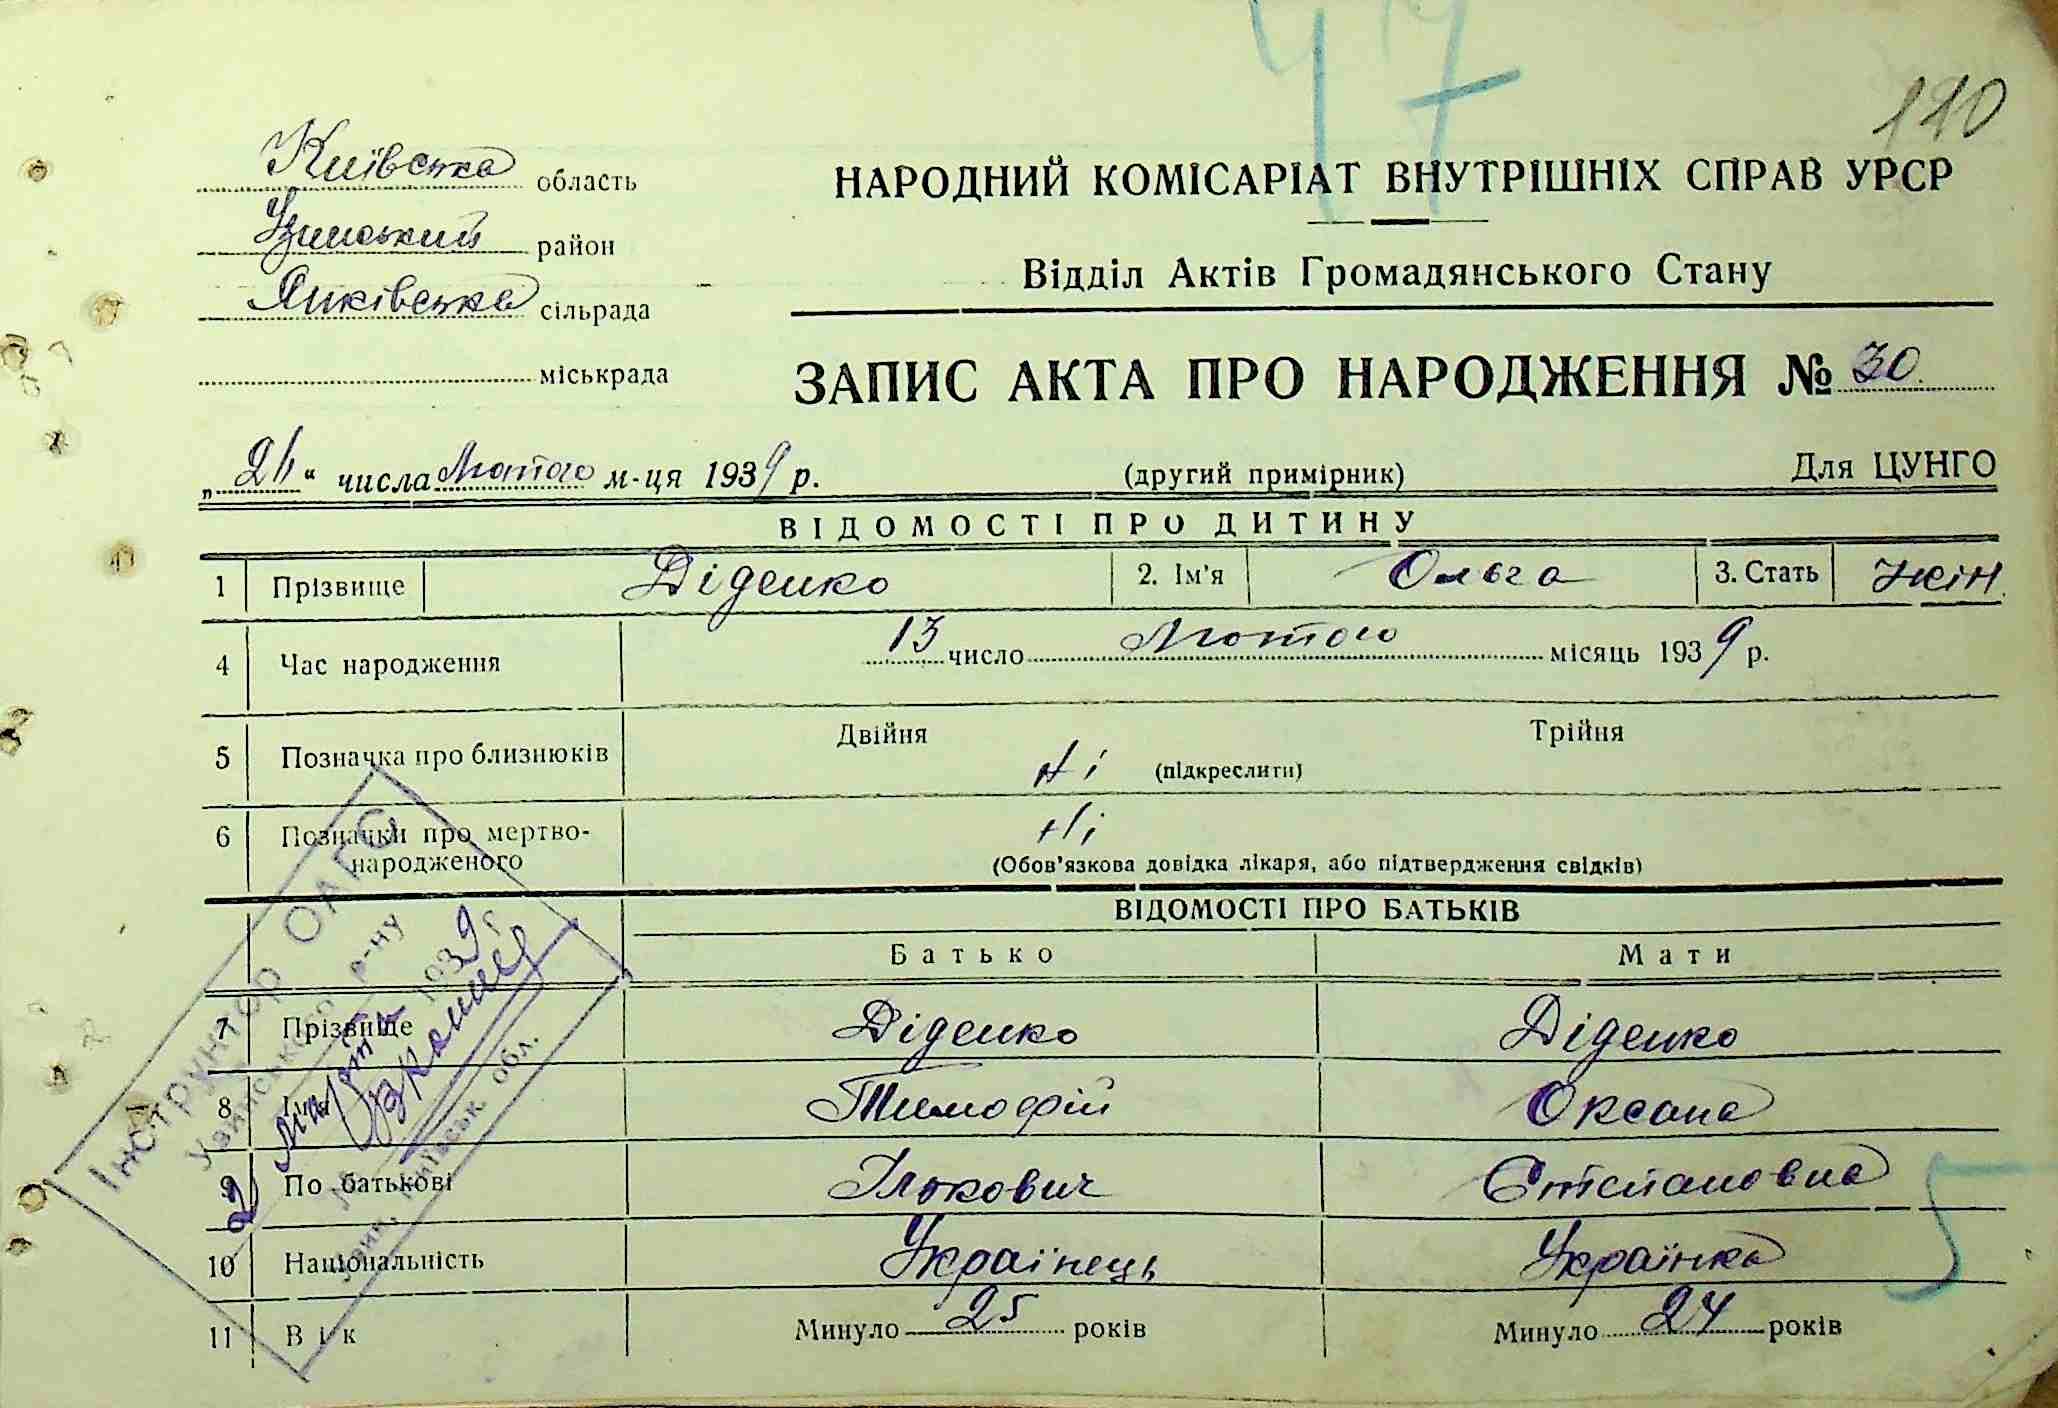 47
110
Київська область
Узинський район
Янківська сільрада
міськрада
НАРОДНИЙ КОМІСАРІАТ ВНУТРІШНІХ СПРАВ УРСР
Відділ Актів Громадянського Стану
ЗАПИС АКТА ПРО НАРОДЖЕННЯ № 30
„ “ числа Лютого м-ця 1939 р. (другий примірник) Для ЦУНГО
ВІДОМОСТІ ПРО ДИТИНУ
1 Прізвище Діденко 2. Ім'я Ольга 3. Стать жін.
4 Час народження 13 число Лютого місяць 1939 р.
5 Позначка про близнюків Двійня Трійня
Ні (підкреслити)
6 Позначки про мертво-
народженого
Ні
(Обов'язкова довідка лікаря, або підтвердження свідків)
ВІДОМОСТІ ПРО БАТЬКІВ
Батько Мати
7 Прізвище Діденко Діденко
8 Ім'я Тимофій Оксана
9 По батькові Ількович Степановна
10 Національність Українець Українка
11 Вік Минуло 25 років Минуло 24 років
5
Інструктор ОАГС
Узинського р-ну
1939 г.
Київськ. обл.